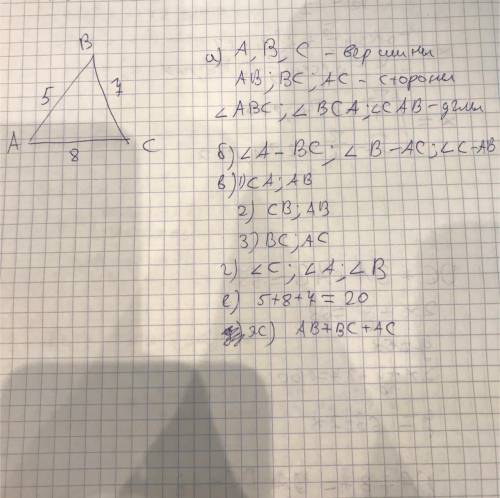 B
5
7
A
C
8
а) А, В, С - вершины
АВ; ВС; АС - стороны
∠ABC; ∠BCA; ∠CAB - углы
б) ∠A - BC; ∠B - AC; ∠C - AB
в) 1) CA; AB
2) CB; AB
3) BC; AC
г) ∠C; ∠A; ∠B
е) 5+8+7=20
ж) AB+BC+AC